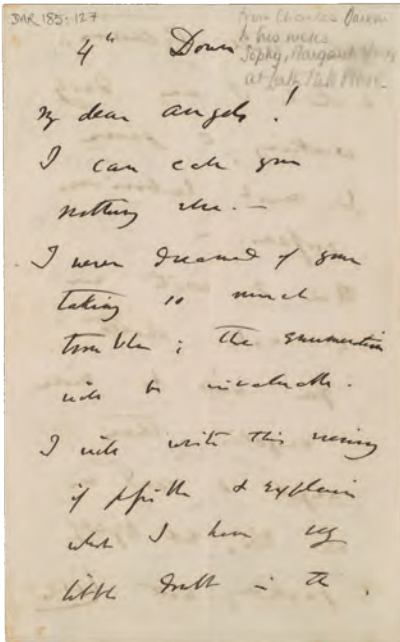 DAR 185: 127
from Charles Darwin
to his nieces
Sophy, Margaret & Lucy
at Leith Hill Place.
4th Down
My dear angels!
I can call you
nothing else.—
I never dreamed of your
taking so much
trouble; the enumeration
will be invaluable.
I will write this evening
if possible & explain
what I have very
little doubt is the